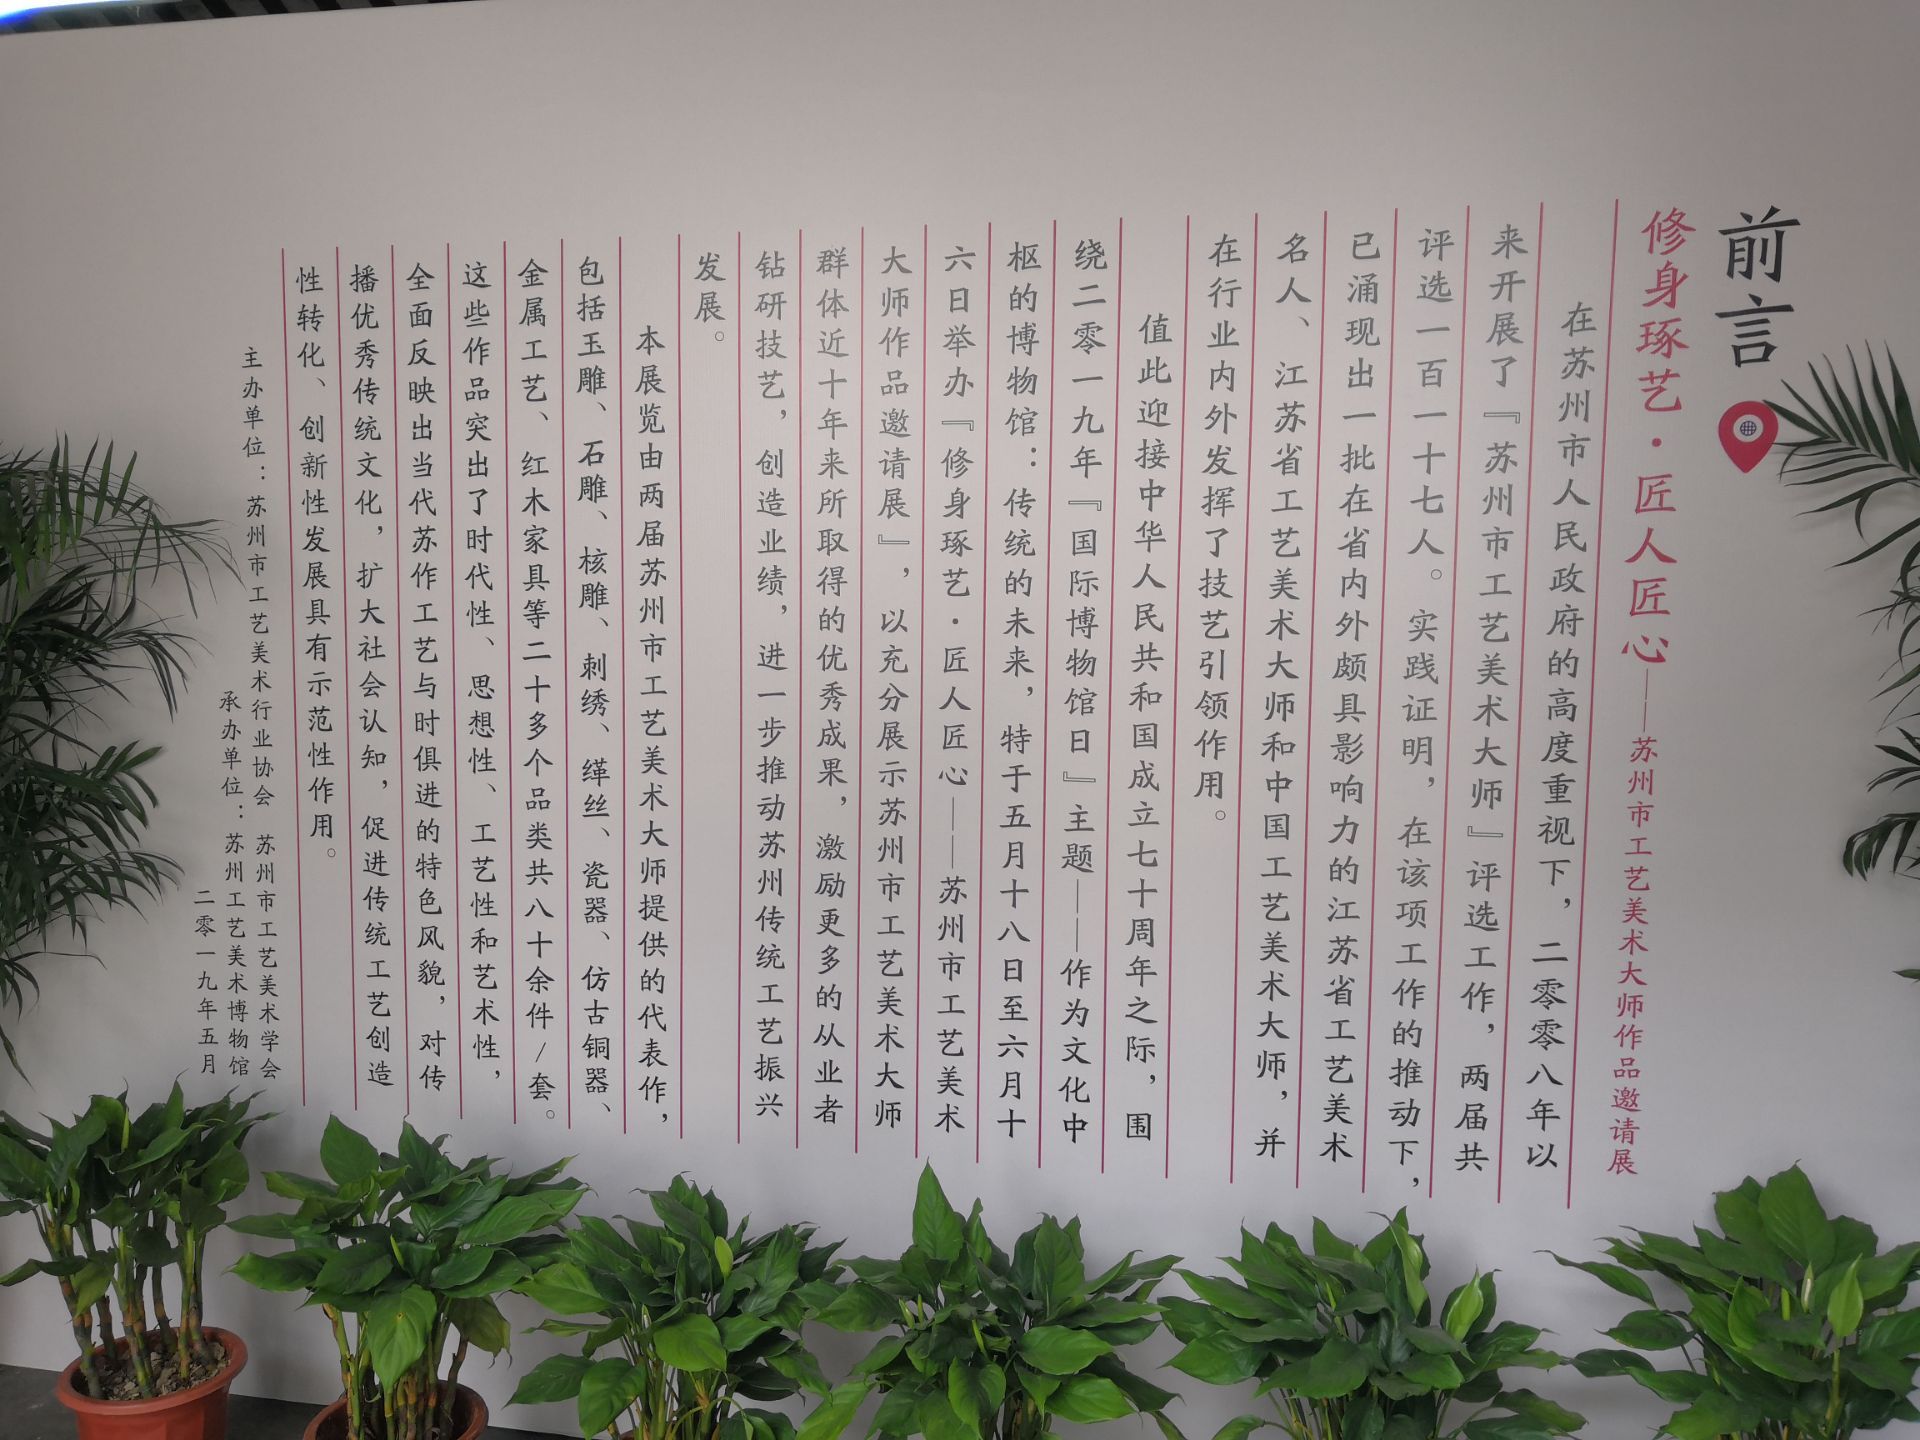 前言
修身琢艺·匠人匠心——苏州市工艺美术大师作品邀请展
在苏州市人民政府的高度重视下，二零零八年以
来开展了『苏州市工艺美术大师』评选工作，两届共
评选一百一十七人。实践证明，在该项工作的推动下，
已涌现出一批在省内外颇具影响力的江苏省工艺美术
名人、江苏省工艺美术大师和中国工艺美术大师，并
在行业内外发挥了技艺引领作用。
值此迎接中华人民共和国成立七十周年之际，围
绕二零一九年『国际博物馆日』主题——作为文化中
枢的博物馆：传统的未来，特于五月十八日至六月十
六日举办『修身琢艺·匠人匠心——苏州市工艺美术
大师作品邀请展』，以充分展示苏州市工艺美术大师
群体近十年来所取得的优秀成果，激励更多的从业者
钻研技艺，创造业绩，进一步推动苏州传统工艺振兴
发展。
本展览由两届苏州市工艺美术大师提供的代表作，
包括玉雕、石雕、核雕、刺绣、缂丝、瓷器、仿古铜器、
金属工艺、红木家具等二十多个品类共八十余件/套。
这些作品突出了时代性、思想性、工艺性和艺术性，
全面反映出当代苏作工艺与时俱进的特色风貌，对传
播优秀传统文化，扩大社会认知，促进传统工艺创造
性转化、创新性发展具有示范性作用。
主办单位：苏州市工艺美术行业协会 苏州市工艺美术学会
承办单位：苏州工艺美术博物馆
二零一九年五月